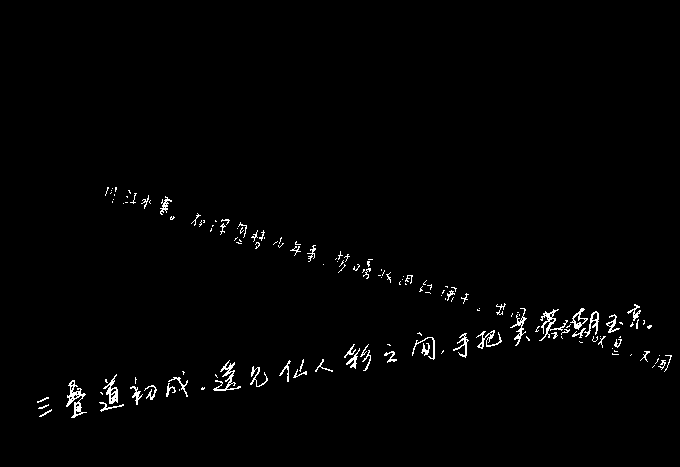 月江水寒。夜深忽梦少年事,梦啼妆泪红阑干。我闻叹息,又闻
三叠道初成,遥见仙人彩云间,手把芙蓉朝玉京。